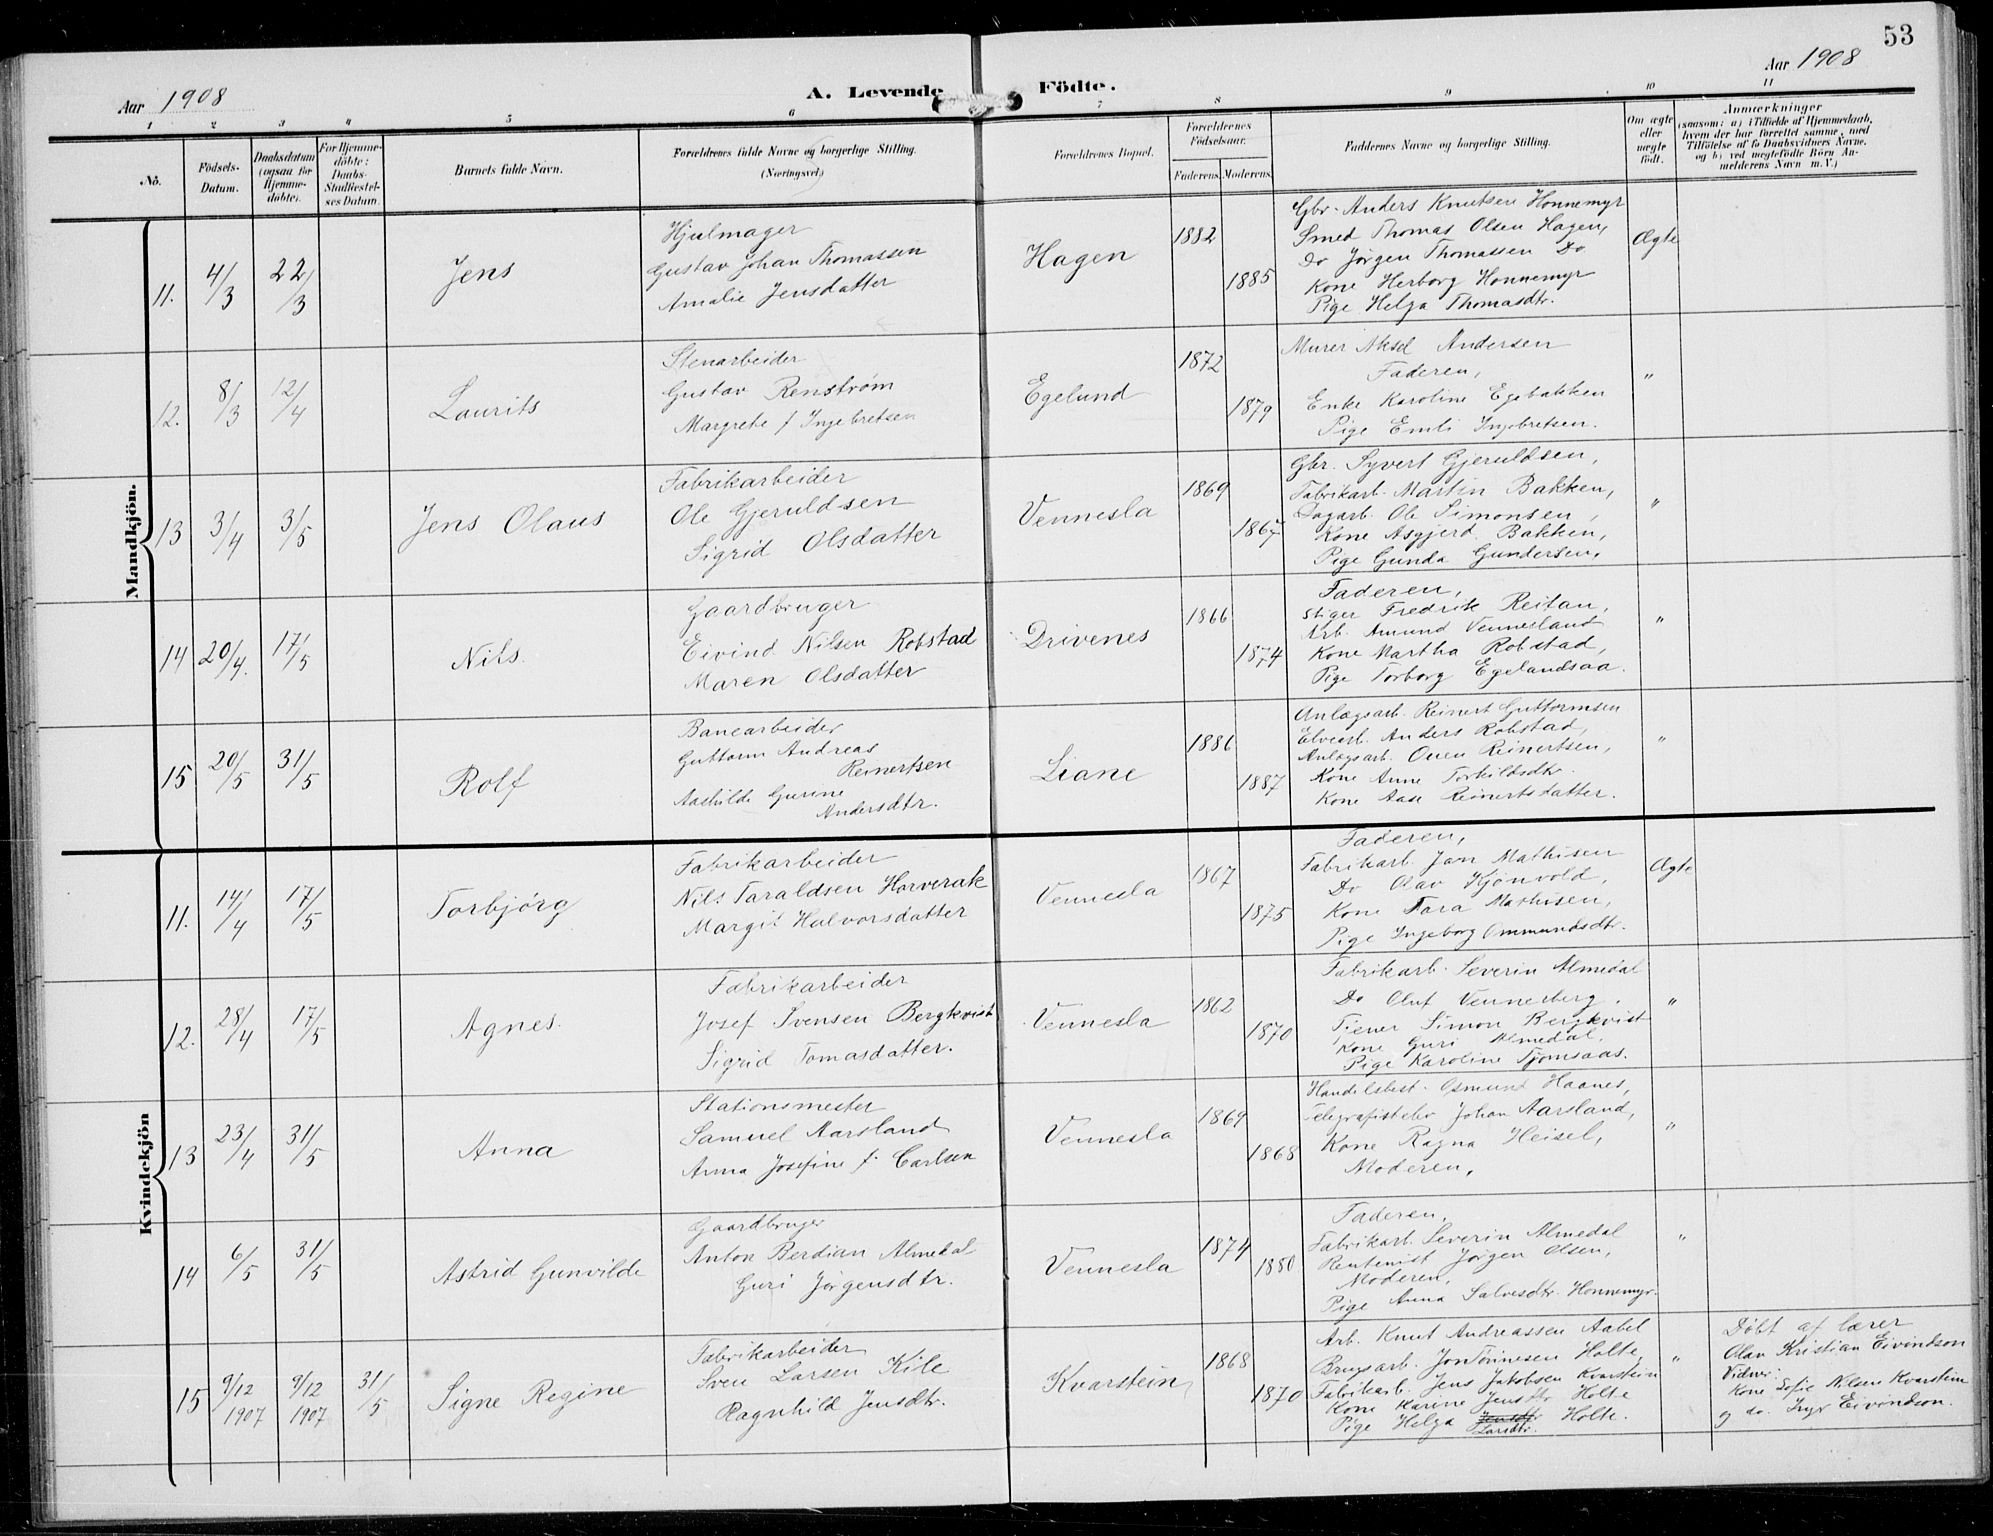 53
Aar 1908
A. Levende
Födte.
Aar 1908
1 2 3 4 5 6 7 8 9 10 11
No.
Födsels-Datum.
Daabsdatum (ogsaa for Hjemme-döbte).
For Hjemme-döbte: Daabs-Stadfæstel-ses Datum.
Barnets fulde Navn.
Forældrenes fulde Navne og borgerlige Stilling.
(Næringsvei)
Forældrenes Bopæl.
Forældrenes Födselsaar.
Faderens. Moderens.
Faddernes Navne og borgerlige Stilling.
Om ægte eller uægte födt.
Anmærkninger
(saasom: a) i Tilfælde af Hjemmedaab,
hvem der har forrettet samme, med
Tilföielse af to Daabsvidners Navne,
og b) ved uægtefödte Börn An-
melderens Navn m. V.)
Mandkjön.
11. 4/3 22/3 Jens
Hjulmager
Gustav Johan Thomassen
Amalie Jensdatter
Hagen 1882 1885
Gbr. Anders Knutsen Honnemyr
Smed Thomas Olsen Hagen,
Do Jørgen Thomassen Do
Kone Herborg Honnemyr
Pige Helga Thomasdtr.
Ægte
12. 8/3 12/4 Laurits
Stenarbeider
Gustav Renstrøm
Margrete f Ingebretsen
Egelund 1872 1879
Murer Aksel Andersen
Faderen,
Enke Karoline Egebakken
Pige Emli Ingebretsen.
"
13 3/4 3/5 Jens Olaus
Fabrikarbeider
Ole Gjeruldsen
Sigrid Olsdatter
Vennesla 1869 1867
Gbr. Syvert Gjeruldsen,
Fabrikarb. Martin Bakken,
Dagarb. Ole Simonsen,
Kone Asgjerd Bakken,
Pige Gunda Gundersen.
"
14 20/4. 17/5 Nils.
Gaardbruger
Eivind Nilsen Robstad
Maren Olsdatter
Drivenes 1866 1874
Faderen,
Stiger Fredrik Reitan,
Arb. Amund Vennesland
Kone Martha Robstad,
Pige Torborg Egelandsaa.
"
15 20/5 31/5 Rolf
Banearbeider
Guttorm Andreas
Reinertsen
Aashilde Gurine
Andersdtr.
Liane 1886 1887
Anlægsarb. Reinert Guttormsen
Elvearb. Anders Robstad,
Anlægsarb. Omen Reinertsen,
Kone Anne Torkildsdtr.
Kone Aase Reinertsdatter.
"
Kvindekjön
11. 14/4 17/5 Torbjørg
Fabrikarbeider
Nils Taraldsen Horverak
Margit Halvorsdatter
Vennesla 1867 1875
Faderen,
Fabrikarb. Jan Mathisen
Do Olav Kjønvold,
Kone Tara Mathisen,
Pige Ingeborg Ommundsdtr.
Ægte
12. 28/4 17/5 Agnes.
Fabrikarbeider
Josef Svensen Bergkvist
Sigrid Tomasdatter.
Vennesla 1862 1870
Fabrikarb. Severin Almedal
Do Oluf Vennesberg.
Tjener Simon Bergkvist
Kone Guri Almedal,
Pige Karoline Tjomsaas.
"
13 23/4 31/5 Anna
Stationsmester
Samuel Aarsland
Anna Josefine f. Carlsen
Vennesla 1869 1868
Handelsbest. Osmund Haanes,
Telegrafistelev Johan Aarsland,
Kone Ragna Heisel,
Moderen,
"
14 6/5 31/5 Astrid Gunvilde
Gaardbruger
Anton Berdian Almedal
Guri Jørgensdtr.
Vennesla 1874 1880
Faderen,
Fabrikarb. Severin Almedal
Rentenist Jørgen Olsen,
Moderen,
Pige Anna Salvesdtr. Honnemyr.
"
15 9/12 1907 9/12 1907 31/5 Signe Regine
Fabrikarbeider
Sven Larsen Kile
Ragnhild Jensdtr.
Kvarstein 1868 1870
Arb. Knut Andreassen Aabel
Brugsarb. Jon Tønnesen Holte,
Fabrikarb. Jens Jakobsen Kvarstein
Kone Karene Jensdtr Holte
Pige Helga Jensdtr Larsdtr. Holte.
"
Døbt af lærer
Olav Kristian Eivindson
Vidner.
Kone Sofie Nilsen Kvarstein
og do. Inger Eivindson.